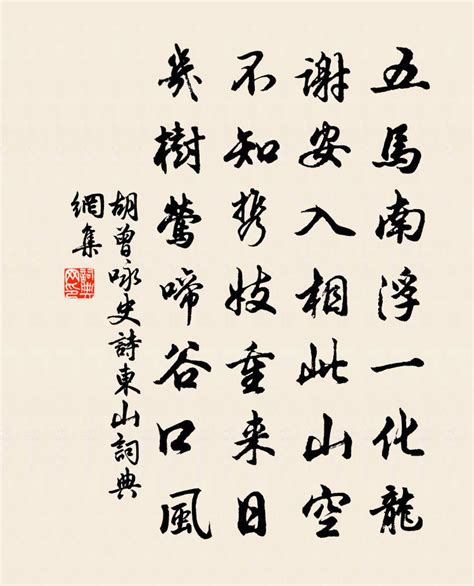 五馬南浮一化龍
謝安入相此山空
不知携妓重來日
幾樹鶯啼谷口風
胡曾咏史詩東山詞典
網集
詞典網印